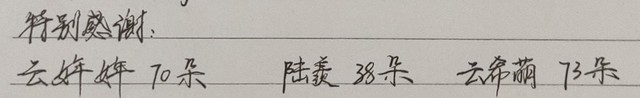 特别感谢:
云婷婷 70朵 陆羡 38朵 云希萌 73朵